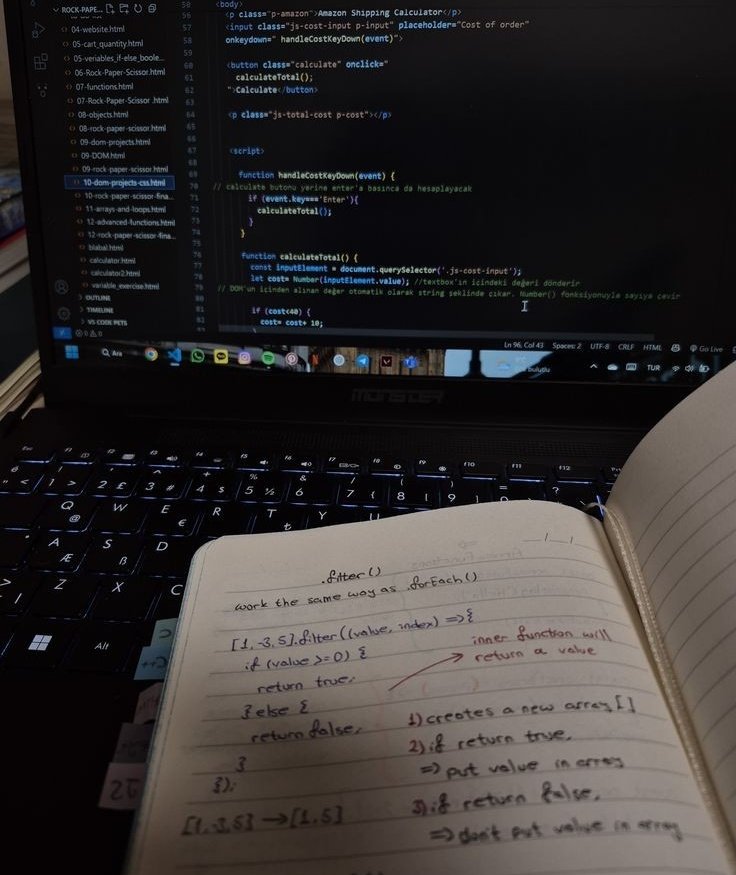 ROCK-PAPE...
04-website.html
05-cart_quantity.html
05-veriables_if-else_boole...
06-Rock-Paper-Scissor.html
07-functions.html
07-Rock-Paper-Scissor .html
08-objects.html
08-rock-paper-scissor.html
09-dom-projects.html
09-DOM.html
09-rock-paper-scissor.html
10-dom-projects-css.html
10-rock-paper-scissor-fina...
11-arrays-and-loops.html
12-advanced-functions.html
12-rock-paper-scissor-fina...
blabal.html
calculator.html
calculator2.html
variable_exercise.html
OUTLINE
TIMELINE
VS CODE PETS
<body>
<p class="p-amazon">Amazon Shipping Calculator</p>
<input class="js-cost-input p-input" placeholder="Cost of order"
onkeydown=" handleCostKeyDown(event)">
<button class="calculate" onclick="
calculateTotal();
">Calculate</button>
<p class="js-total-cost p-cost"></p>
<script>
function handleCostKeyDown(event) {
// calculate butonu yerine enter'a basınca da hesaplayacak
if (event.key==='Enter'){
calculateTotal();
}
}
function calculateTotal() {
const inputElement = document.querySelector('.js-cost-input');
let cost= Number(inputElement.value); //textbox'ın içindeki değeri döndürür
// DOM'un içinden alınan değer otomatik olarak string şeklinde çıkar. Number() fonksiyonuyla sayıya çevir
if (cost<40) {
cost= cost+ 10;
Ln 96, Col 43 Spaces: 2 UTF-8 CRLF HTML Go Live
Ara
bulutlu
TUR
MONSTER
.filter()
work the same way as .forEach()
[1,-3,5].filter((value, index) => {
if (value >=0) {
return true;
} else {
return false;
}
});
[1,-3,5] → [1,5]
inner function will
return a value
1) creates a new array []
2) if return true,
=> put value in array
3) if return false,
=> don't put value in array
C
C++
22